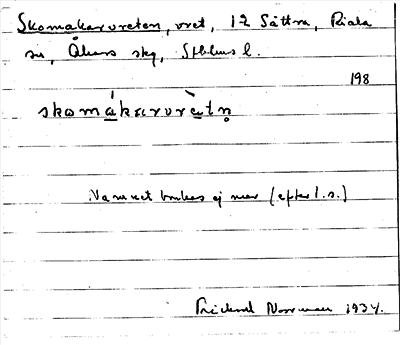 Skomakarvreten, vret, 12 Sättra, Riala
sn, Åkers skg, Sthlms l.
198
skomákarvrètn̥
Namnet brukas ej mer (efter l. s.)
Rickard Norrman 1934.